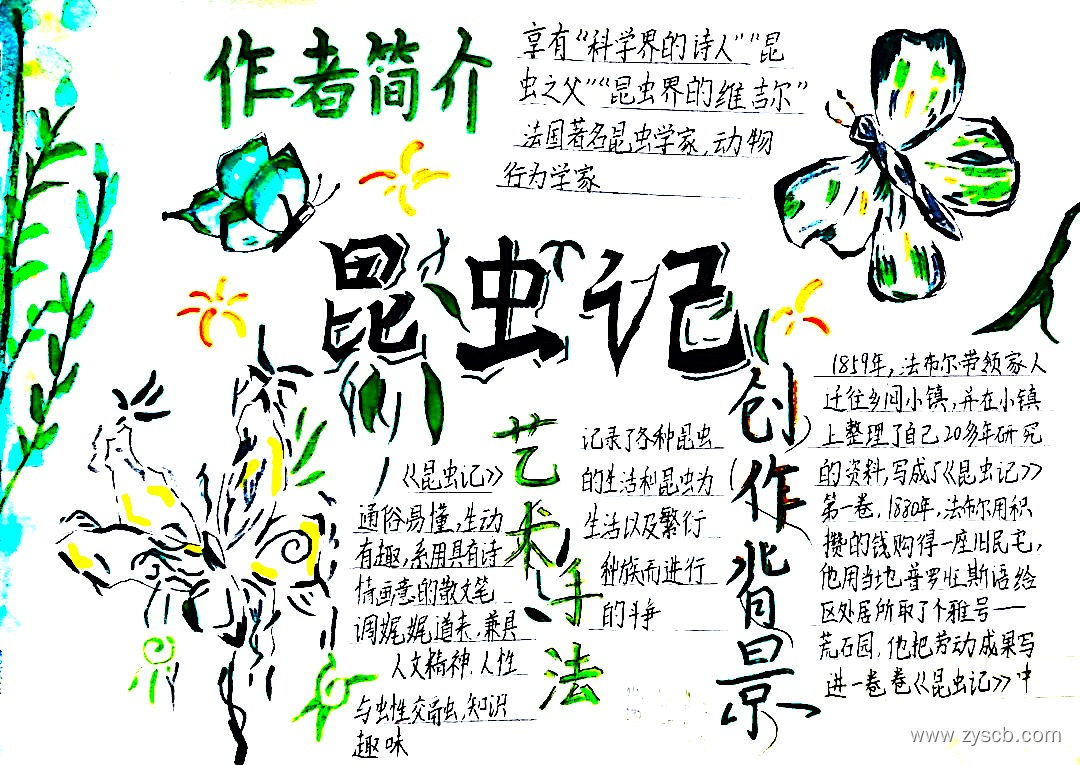 作者简介
享有“科学界的诗人”“昆
虫之父”“昆虫界的维吉尔”
法国著名昆虫学家,动物
行为学家
昆虫记
《昆虫记》
通俗易懂,生动
有趣,采用具有诗
情画意的散文笔
调娓娓道来,兼具
人文精神,人性
与虫性交
虫,知识
趣味
艺术手法
记录了各种昆虫
的生活和昆虫为
生活以及繁衍
种族而进行
的斗争
创作背景
1859年,法布尔带领家人
迁住乡间小镇,并在小镇
上整理了自己20多年研究
的资料,写成了《昆虫记》
第一卷,1880年,法布尔用积
攒的钱购得一座旧民宅,
他用当地普罗旺斯语给
区处居所取了个雅号——
荒石园,他把劳动成果写
进一卷卷《昆虫记》中
www.zyscb.com